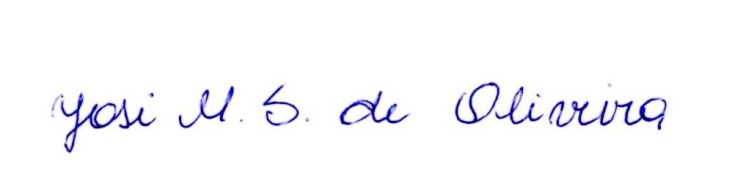 Yosi M. S. de Oliveira